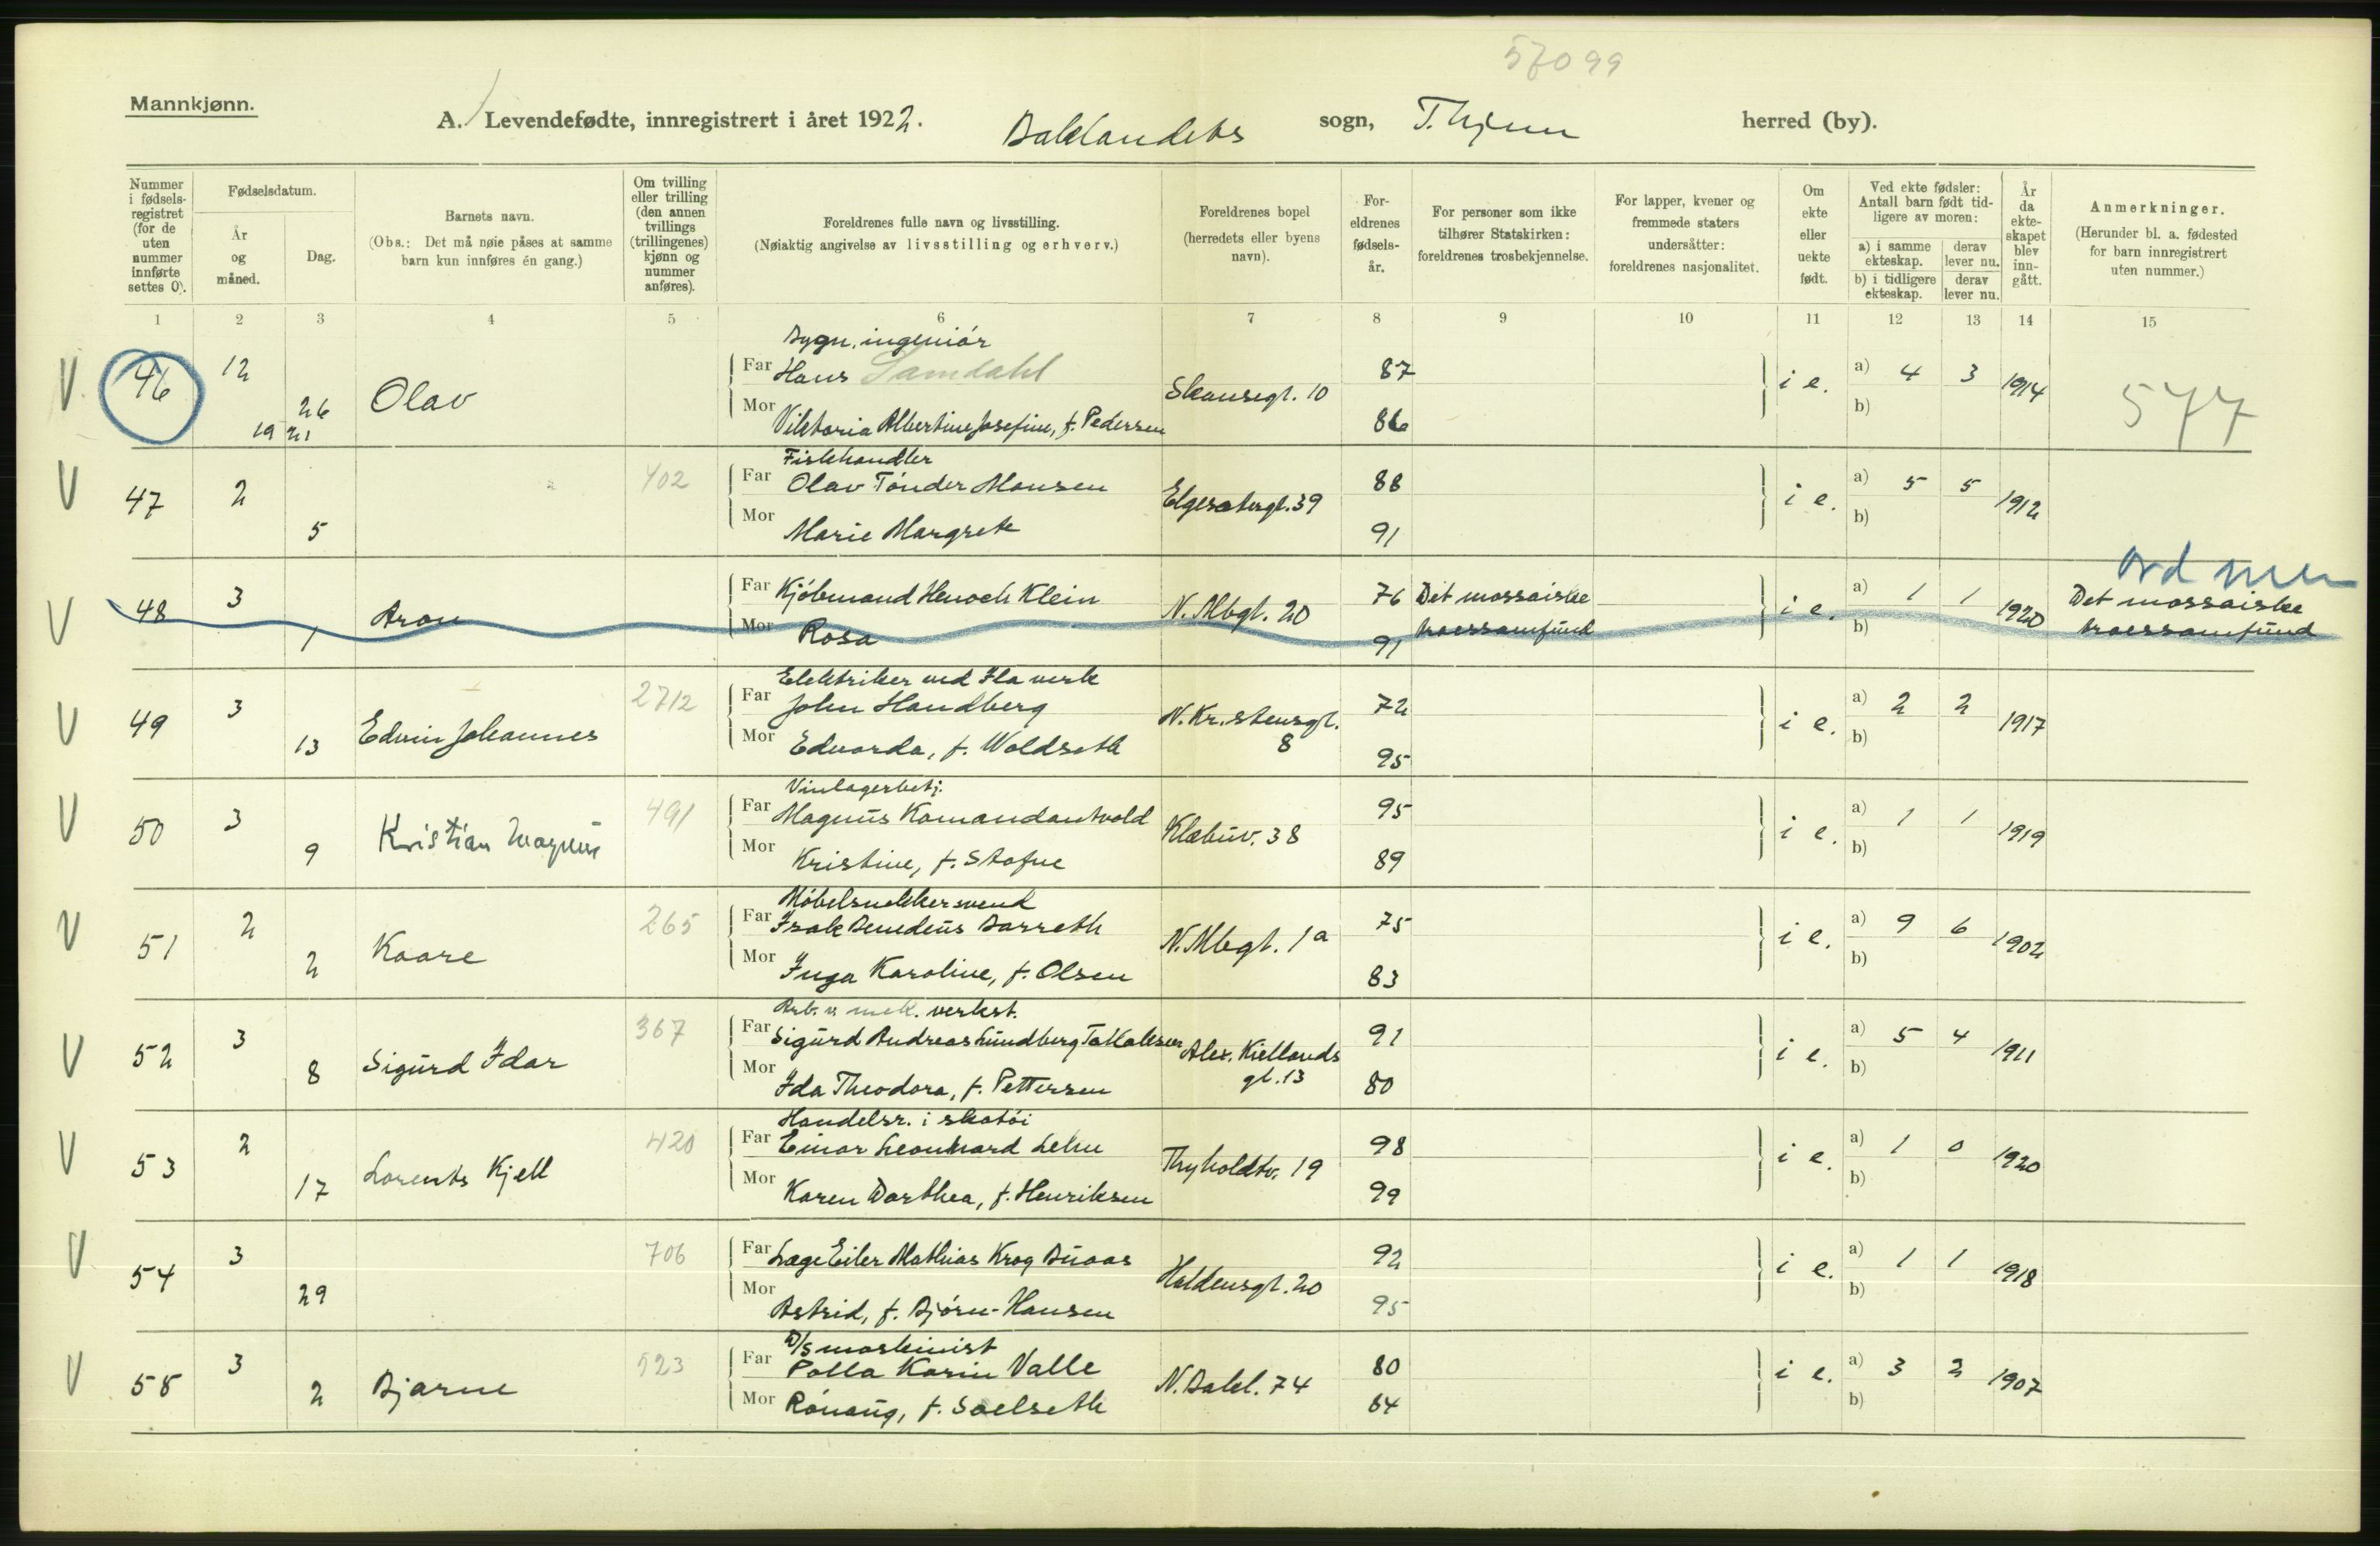 57099
Mannkjønn.
A. Levendefødte, innregistrert i året 1922. Baklandets sogn, T.hjem herred (by).
Nummer i fødsels-registret (for de uten nummer innførte settes 0).
Fødselsdatum.
År og måned.
Dag.
Barnets navn.
(Obs.: Det må nøie påses at samme barn kun innføres én gang.)
Om tvilling eller trilling (den annen tvillings (trillingenes) kjønn og nummer anføres).
Foreldrenes fulle navn og livsstilling.
(Nøiaktig angivelse av livsstilling og erhverv.)
Foreldrenes bopel (herredets eller byens navn).
For-eldrenes fødsels-år.
For personer som ikke tilhører Statskirken: foreldrenes trosbekjennelse.
For lapper, kvener og fremmede staters undersåtter: foreldrenes nasjonalitet.
Om ekte eller uekte født.
Ved ekte fødsler: Antall barn født tid-ligere av moren:
a) i samme ekteskap. derav lever nu.
b) i tidligere ekteskap. derav lever nu.
År da ekte-skapet blev inn-gått.
Anmerkninger.
(Herunder bl. a. fødested for barn innregistrert uten nummer.)
1 2 3 4 5 6 7 8 9 10 11 12 13 14 15
Bygn. ingeniór
V 46 12 Far Hans Samdahl 87 a) 4 3
26 Olav Skansegt. 10 i e. 1914 577
19 21 Mor Viktoria Albertine Josefine, f. Pedersen 86 b)
Fiskhandler
V 47 2 402 Far Olav Tónder Hansen 88 a) 5 5
Elgesetergt. 39 i e. 1912
5 Mor Marie Margrete 91 b)
ord men
V 48 3 Far Kjóbmand Henoch Klein 76 Det mosaiske a) 1 1 Det mosaiske
Aron N. Mbgt. 20 i e. 1920
1 Mor Rosa 91 troessamfund b) troessamfund
Elektriker ved Ila verk
V 49 3 2712 Far John Handberg 72 a) 2 2
13 Edvin Johannes N. Kr.stensgt. 8 i e. 1917
Mor Edvarda, f. Woldseth 95 b)
Vinlagerbetj.
V 50 3 491 Far Magnus Komandantvold 95 a) 1 1
9 Kristian Magnus Klæbuv. 38 i e. 1919
Mor Kristine, f. Stafne 89 b)
Móbelsnekkersvend
V 51 2 265 Far Isak Benedeus Barreth 75 a) 9 6
2 Kaare N. Mbgt. 1a i e. 1902
Mor Inga Karoline, f. Olsen 83 b)
Arb. v. mek. verkst.
V 52 3 367 Far Sigurd Andreas Lundberg Tollaksen 91 a) 5 4
8 Sigurd Idar Alex. Kiellands gt. 13 i e. 1911
Mor Ida Theodora, f. Pettersen 80 b)
Handelsr. i skotói
V 53 2 420 Far Einar Leonhard Lehn 98 a) 1 0
17 Lorents Kjell Thyholdtv. 19 i e. 1920
Mor Karen Dorthea, f. Henriksen 99 b)
V 54 3 706 Far Læge Eiler Mathias Krog Buaas 92 a) 1 1
29 Haldensgt. 20 i e. 1918
Mor Astrid, f. Bjórn-Hansen 95 b)
D/S maskinist
V 55 3 523 Far Palla Karin Valle 80 a) 3 2
2 Bjarne N. Bakl. 74 i e. 1907
Mor Rónaug, f. Saelseth 84 b)